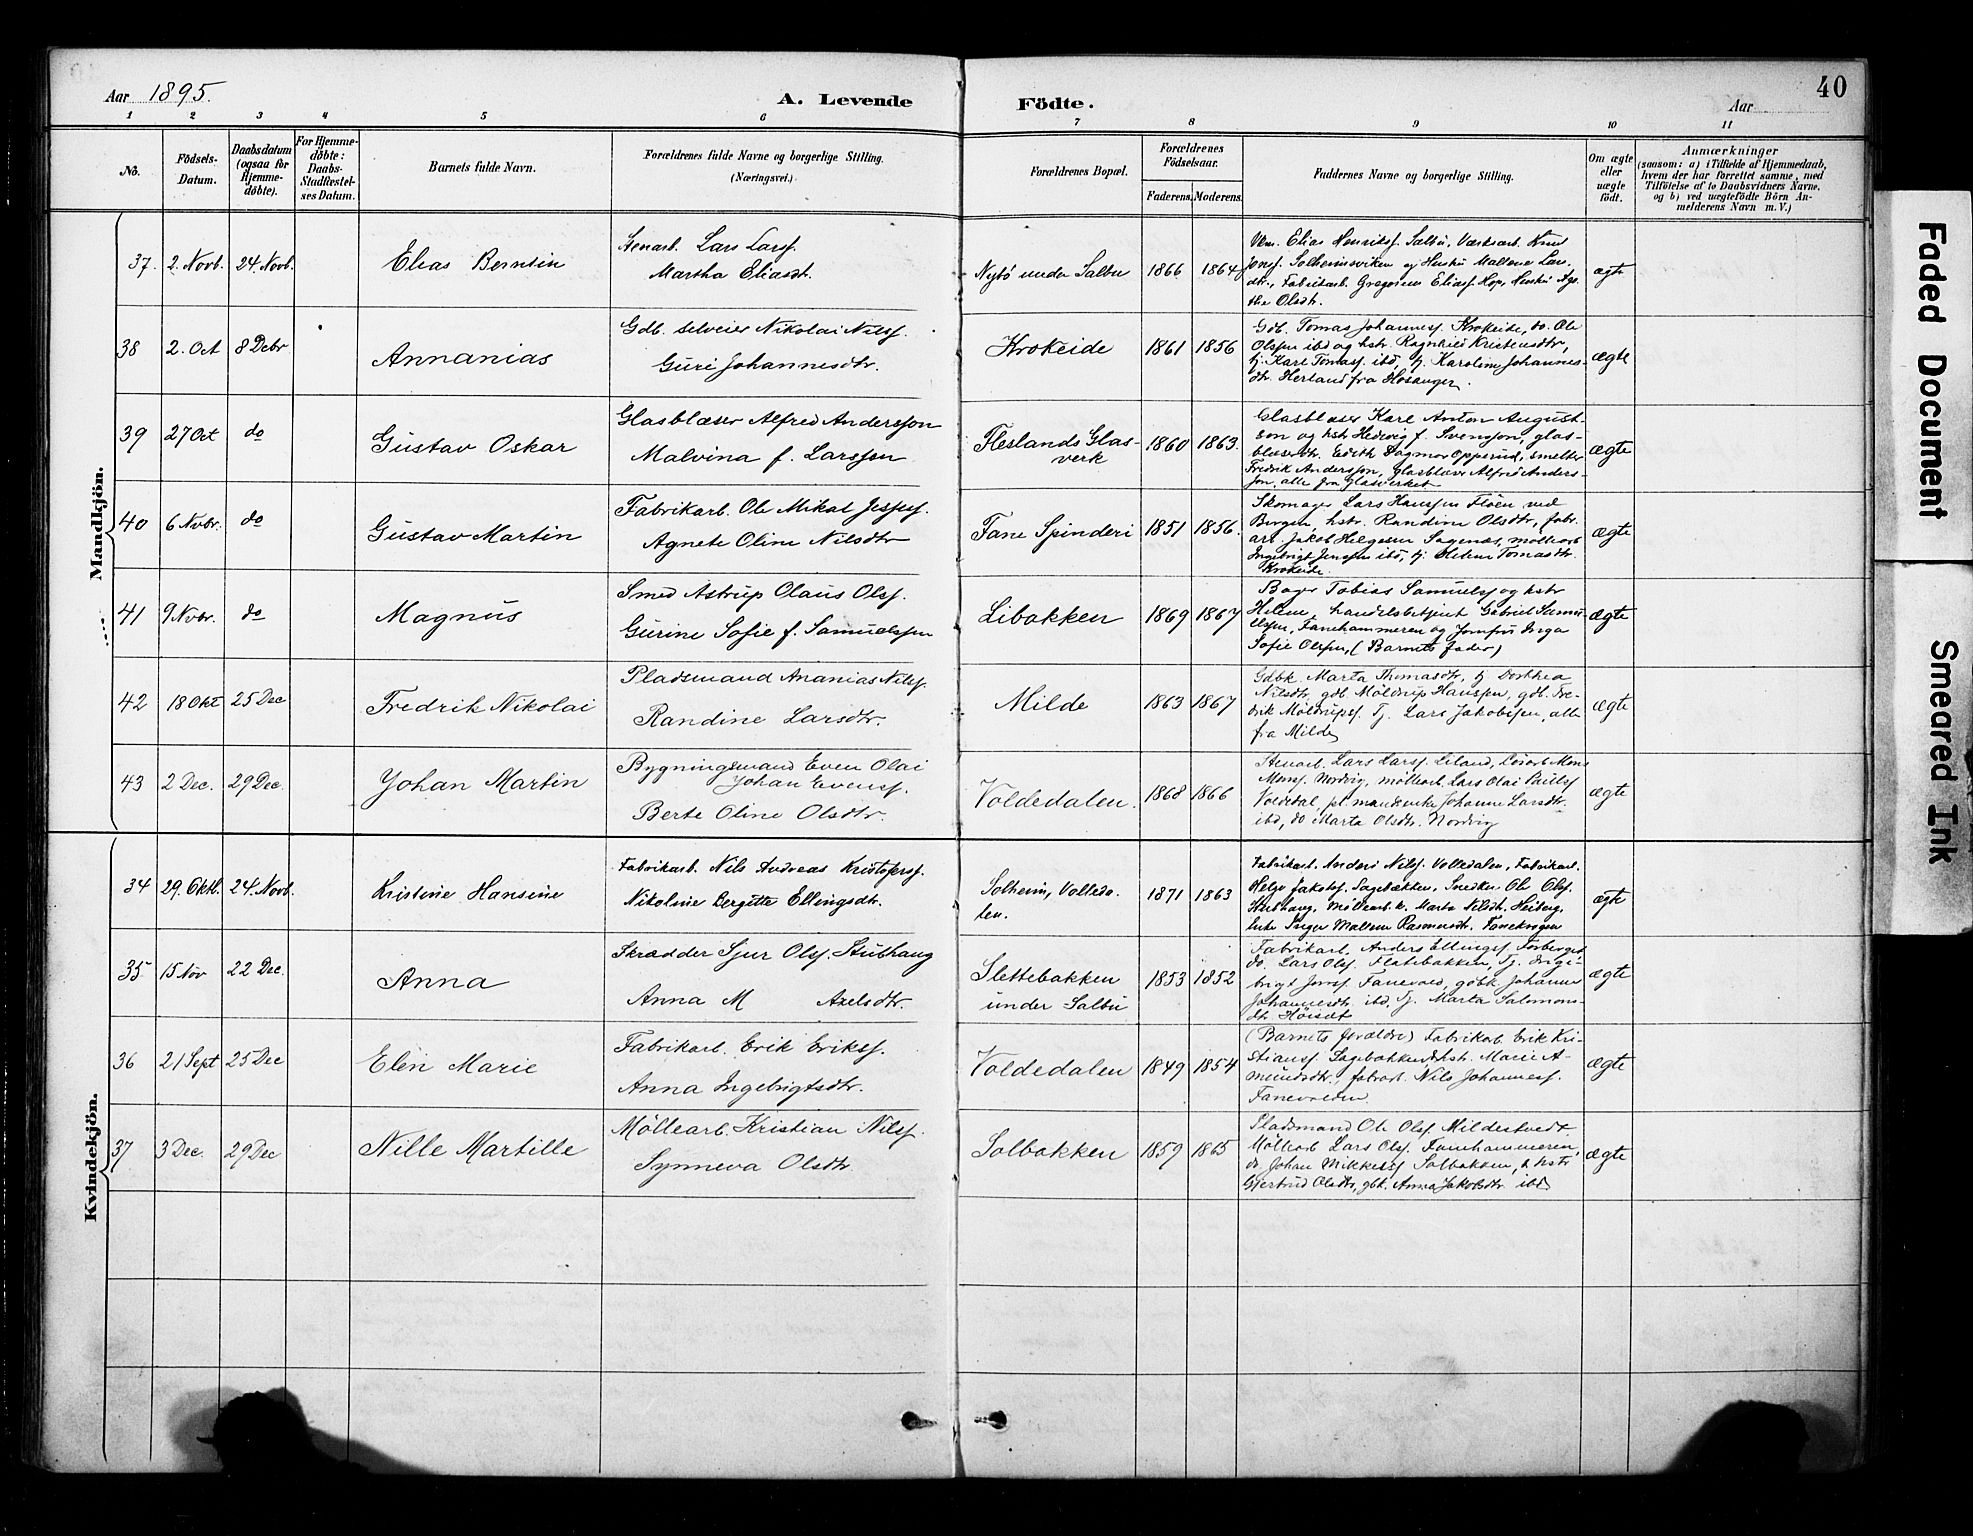 Aar 1895.
A. Levende Födte.
Aar
40
1 2 3 4 5 6 7 8 9 10 11
No.
Födsels-Datum.
Daabsdatum (ogsaa for Hjemme-döbte).
For Hjemme-döbte: Daabs-Stadfæstel-ses Datum.
Barnets fulde Navn.
Forældrenes fulde Navne og borgerlige Stilling.
(Næringsvei.)
Forældrenes Bopæl.
Forældrenes Födselsaar.
Faderens. Moderens.
Faddernes Navne og borgerlige Stilling.
Om ægte eller uægte födt.
Anmærkninger
(saasom: a) i Tilfælde af Hjemmedaab,
hvem der har forrettet samme, med
Tilföielse af to Daabsvidners Navne,
og b) ved uægtefödte Börn An-
melderens Navn m. V.)
Mandkjön.
37. 2. Novb. 24. Novb. Elias Berntin
Stenarb. Lars Larss.
Martha Eliasdt.
Nybö under Salbu 1866 1864
Elias Henriks. Salbu, Værksarb. Knut
Jons. Solheimsviken og Hustru Maltene Lars
dtr., Fabrikarb. Gregorius Eliass. Hop, Hustru Aga
the Olsdt.
ægte
38 2. Oct 8 Debr Annanias
Gdb. selveier Nikolai Nilss.
Guri Johannesdtr.
Krokeide 1861 1856
Gdb. Tomas Johanness. Krokeide, do. Ole
Olssen ibd og hstr. Ragnhild Kristensdtr,
tj. Karl Tomass. ibd, tj. Karoline Johannes-
dtr. Herland fra Hosanger.
ægte
39 27 Oct do Gustav Oskar
Glasblæser Alfred Andersson
Malvina f. Larsson
Fleslands Glas-
verk
1860 1863.
Glasblæser Karl Anton August-
son og hstr Hedvig f. Svensson, glas-
blæserdtr. Edith Dagmar Opperud, smelter
Fredrik Andersson, glasblæser Alfred Anders-
son, alle fra glasverket
ægte
40 6 Nvbr. do Gustav Martin
Fabrikarb. Ole Mikal Jespers.
Agnete Oline Nilsdtr
Fane Spinderi 1851 1856.
Skomager Lars Hanssen Flöen ved
Bergen, hstr. Randine Olsdtr, fabr.
arb. Jakob Helgesen Sagenæs, möllearb
Ingebrigt Jenssen ibd, tj. Helene Tomasdtr.
Krokeide.
ægte
41 9 Nvbr. do Magnus
Smed Astrup Olaus Olss.
Gurine Sofie f. Samuelssen
Libakken 1869 1867
Bager Tobias Samuelss og hstr
Helene, handelsbetjent Gabriel Samu-
elssen, Fanehammeren og Jomfru Inga
Sofie Olssen, (Barnets fader)
ægte
42 18 Okt 25 Dec Fredrik Nikolai
Pladsmand Ananias Nilss.
Randine Larsdtr.
Milde 1863 1867
Gdbk. Marta Thomasdtr, tj. Dorthea
Nilsdtr, gdb. Möldrup Hanssen, gdb. Fre-
drik Möldrups. Tj. Lars Jakobssen, alle
fra Milde
ægte
43 2 Dec. 29 Dec. Johan Martin
Bygningsmand Even Olai
Johan Evens.
Berte Oline Olsdtr.
Voldedalen. 1868 1866
Stenarb. Lars Larss. Liland, Mons
Monss. Nordvig, möllearb. Lars Olai
Voldedal, pl. mandsenke Johanne Larsdtr.
ibd, do Marta Olsdtr. Nordvig
ægte
Kvindekjön.
34 29. Oktb. 24. Novb. Kristine Hansine
Fabrikarb. Nils Andreas Kristofers.
Nikoline Bergitte Ellingsdtr.
Solheim, Volleda-
len.
1871 1863
Fabrikarb. Anders Nilss. Volledalen, Fabrikarb.
Helge Jakobs. Sagbakken, Snedker Ole Olss.
Stubhaug, Marta Nilsdt. Heiberg,
Inger Maltene Rasmusdt. Fanekrogen
ægte
35 15 Nov 22 Dec. Anna
Skrædder Sjur Olss. Stubhaug
Anna M Axelsdtr.
Slettebakken
under Salbu
1853 1852
Fabrikarb. Anders Ellings.
do. Lars Olss. Flatebakken, Tj. Inge-
brigt Jonss. Fanevold, gdbk Johanne
Johannesdtr. ibd, Tj. Marta Salomons-
dtr
ægte
36 21 Sept 25 Dec Elen Marie
Fabrikarb. Erik Erikss.
Anna Ingebrigtsdtr.
Voldedalen 1849 1854
(Barnets forældre) Fabrikarb. Erik Kri-
stians. Sagebakken & hstr. Marie A-
mundsdtr., fabrarb. Nils Johanness.
Fanevolden.
ægte
37 3 Dec. 29 Dec Nille Martille
Möllearb. Kristian Nilss.
Synneva Olsdtr
Solbakken 1859 1865
Pladsmand Ole Olss. Mildestvedt.
Möllearb Lars Olss. Fanehammeren,
do Johan Mikkels Solbakken, & hstr
Gjertrud Olsdtr, gbk. Anna Jakobsdtr ibd
ægte
Faded Document
Smeared Ink